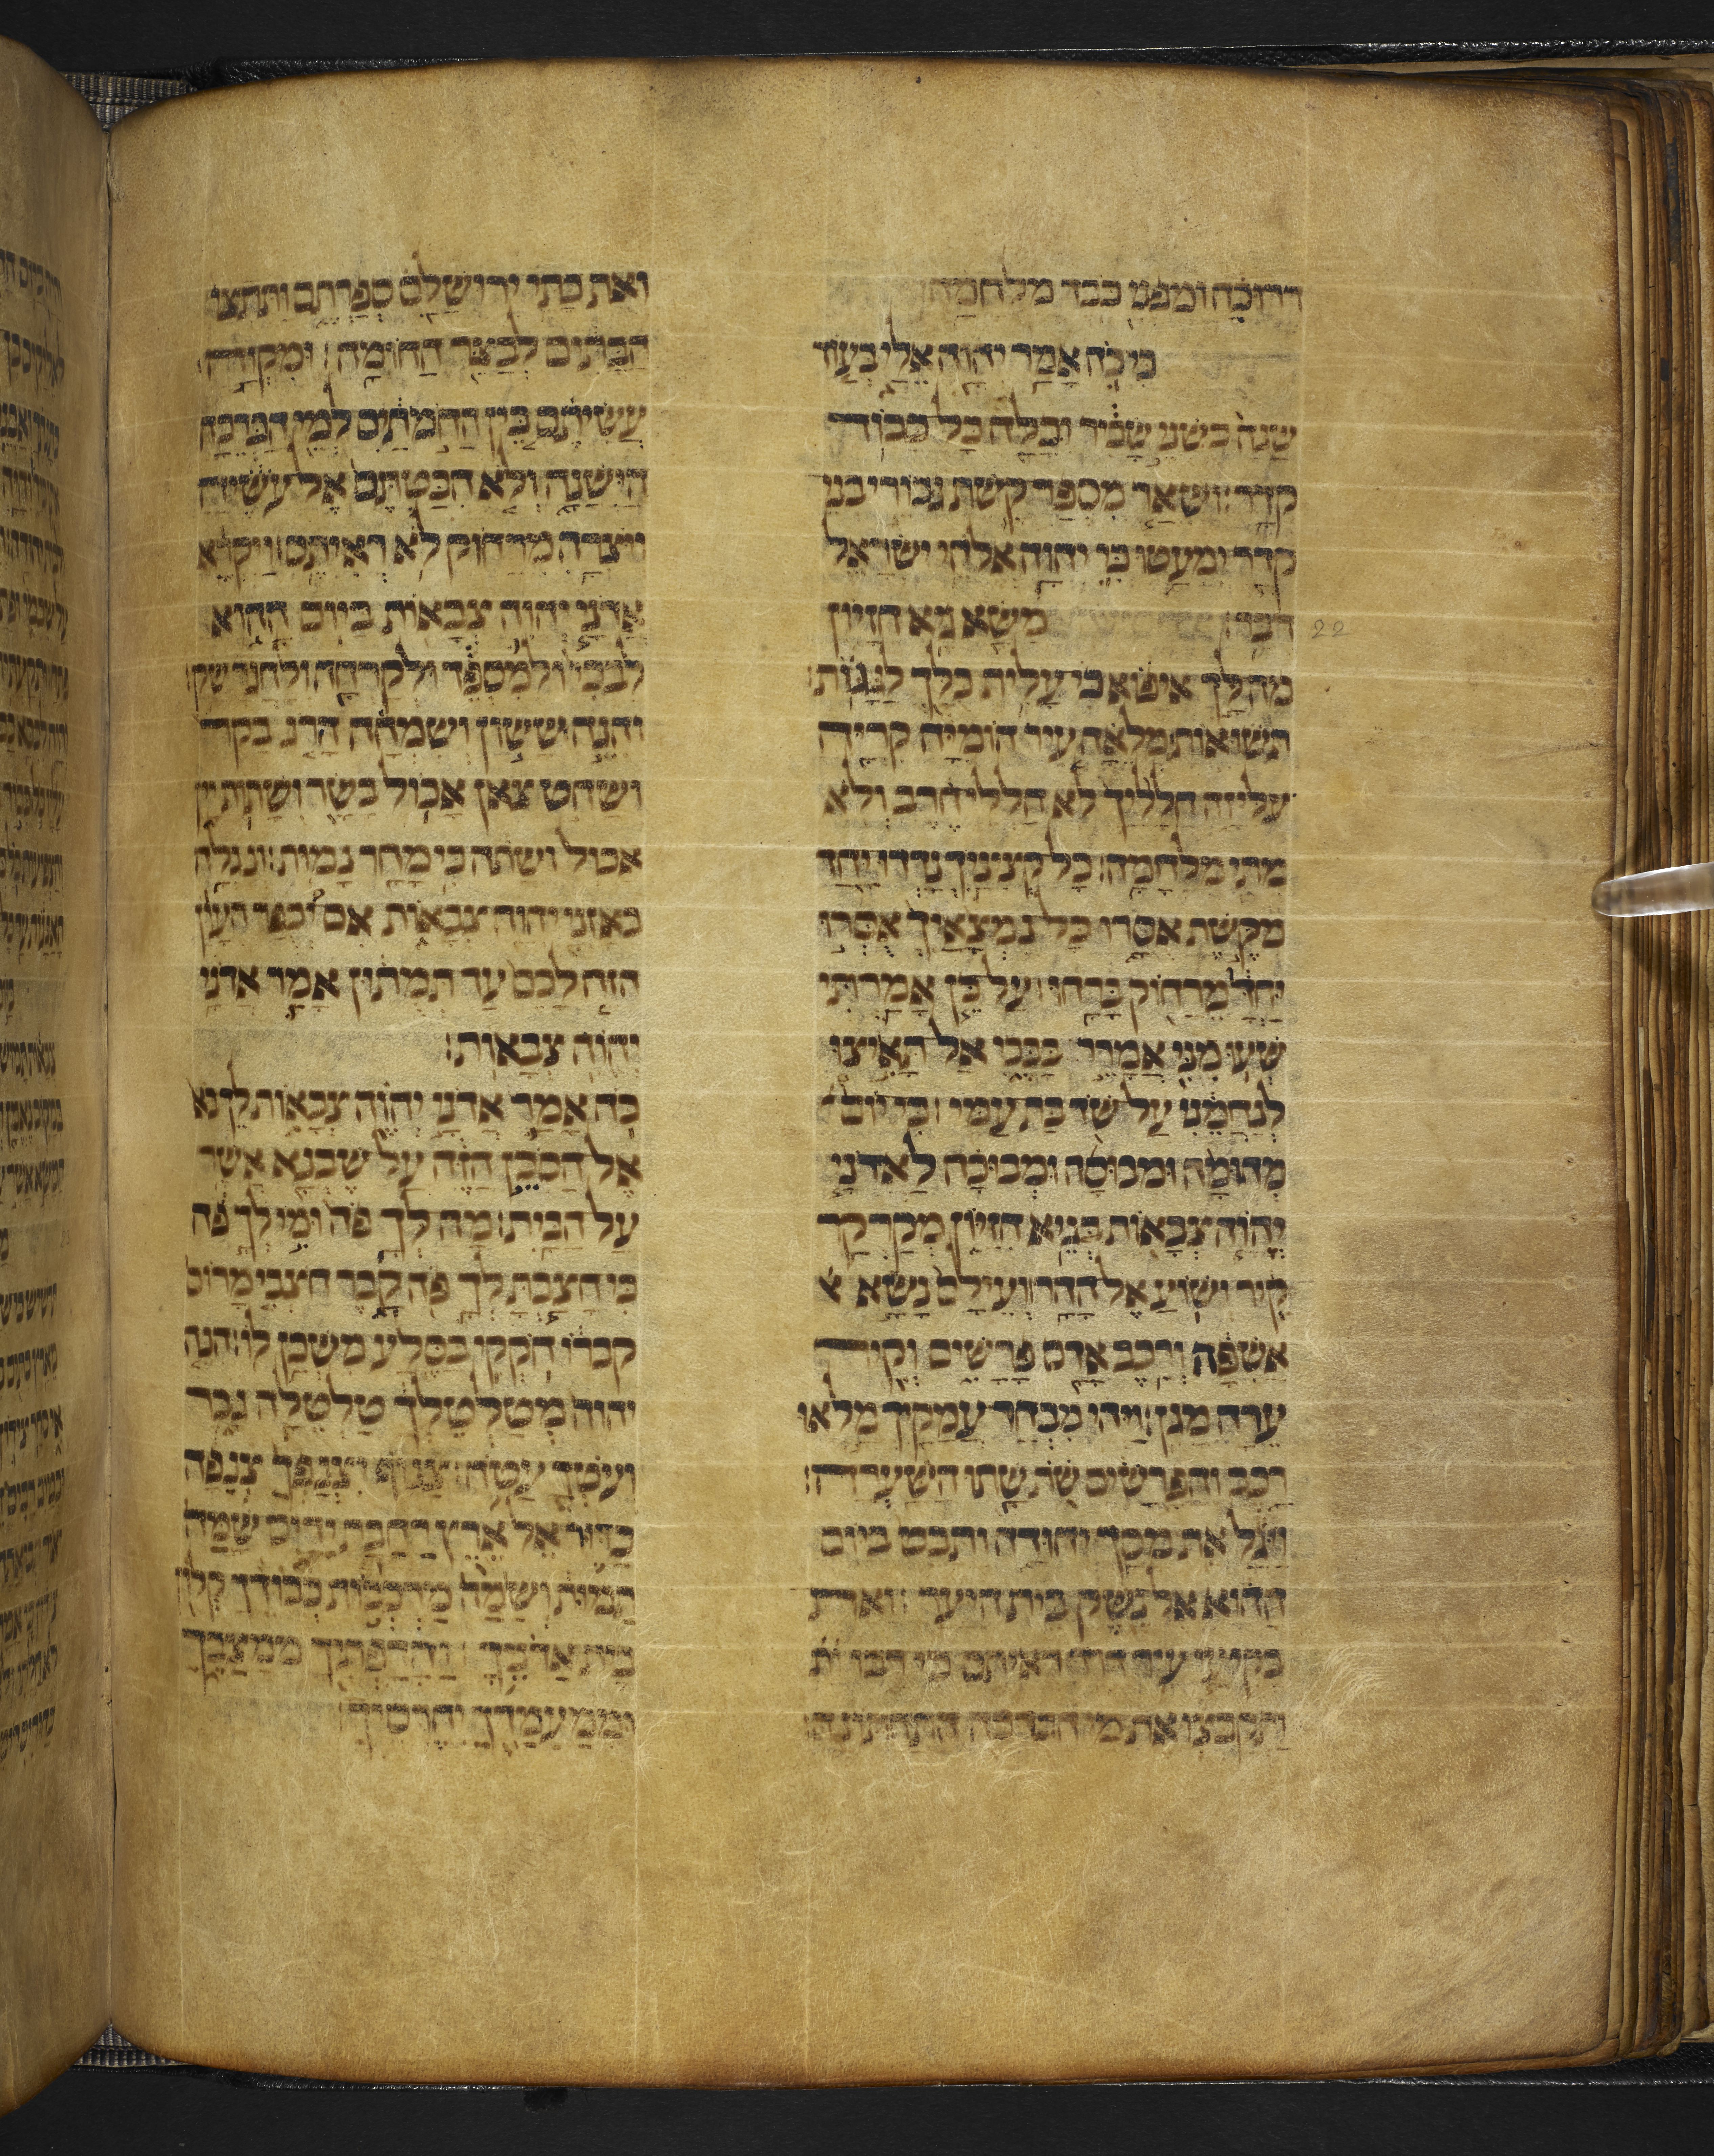 דרוכה ומפני כבד מלחמה
כי כה אמר יהוה אלי בעוד
שנה כשני שכיר וכלה כל כבוד
קדר ושאר מספר קשת גבורי בני
קדר ימעטו כי יהוה אלהי ישראל
דבר׃ משא גיא חזיון
22
מה לך איפוא כי עלית כלך לגגות׃
תשואות מלאה עיר הומיה קריה
עליזה חלליך לא חללי חרב ולא
מתי מלחמה׃ כל קציניך נדדו יחד
מקשת אסרו כל נמצאיך אסרו
יחדו מרחוק ברחו׃ על כן אמרתי
שעו מני אמרר בבכי אל תאיצו
לנחמני על שד בת עמי׃ כי יום
מהומה ומבוסה ומבוכה לאדני
יהוה צבאות בגיא חזיון מקרקר
קיר ושוע אל ההר׃ ועילם נשא א
אשפה ורכב אדם פרשים וקיר
ערה מגן׃ ויהי מבחר עמקיך מלאו
רכב והפרשים שת שתו השערה׃
ויגל את מסך יהודה ותבט ביום
ההוא אל נשק בית היער׃ ואת
בקיעי עיר דוד ראיתם כי רבו ות
ותקבצו את מי הברכה התחתונה׃
ואת בתי ירושלם ספרתם ותתצו
הבתים לבצר החומה׃ ומקוה
עשיתם בין החמתים למי הברכה
הישנה ולא הבטתם אל עשיה
ויצרה מרחוק לא ראיתם׃ ויקרא
אדני יהוה צבאות ביום ההוא
לבכי ולמספד ולקרחה ולחגר שק׃
והנה ששון ושמחה הרג בקר
ושחט צאן אכול בשר ושתת יין
אכול ושתה כי מחר נמות׃ ונגלה
באזני יהוה צבאות אם יכפר העון
הזה לכם עד תמתון אמר אדני
יהוה צבאות׃
כה אמר אדני יהוה צבאות לך בא
אל הסכן הזה על שבנא אשר
על הבית׃ מה לך פה ומי לך פה
כי חצבת לך פה קבר חצבי מרום
קברו חקקי בסלע משכן לו׃ הנה
יהוה מטלטלך טלטלה גבר
ועטך עטה׃ צנוף יצנפך צנפה
כדור אל ארץ רחבת ידים שמה
תמות ושמה מרכבות כבודך קלון
בית אדניך׃ והדפתיך ממצבך
וממעמדך יהרסך׃